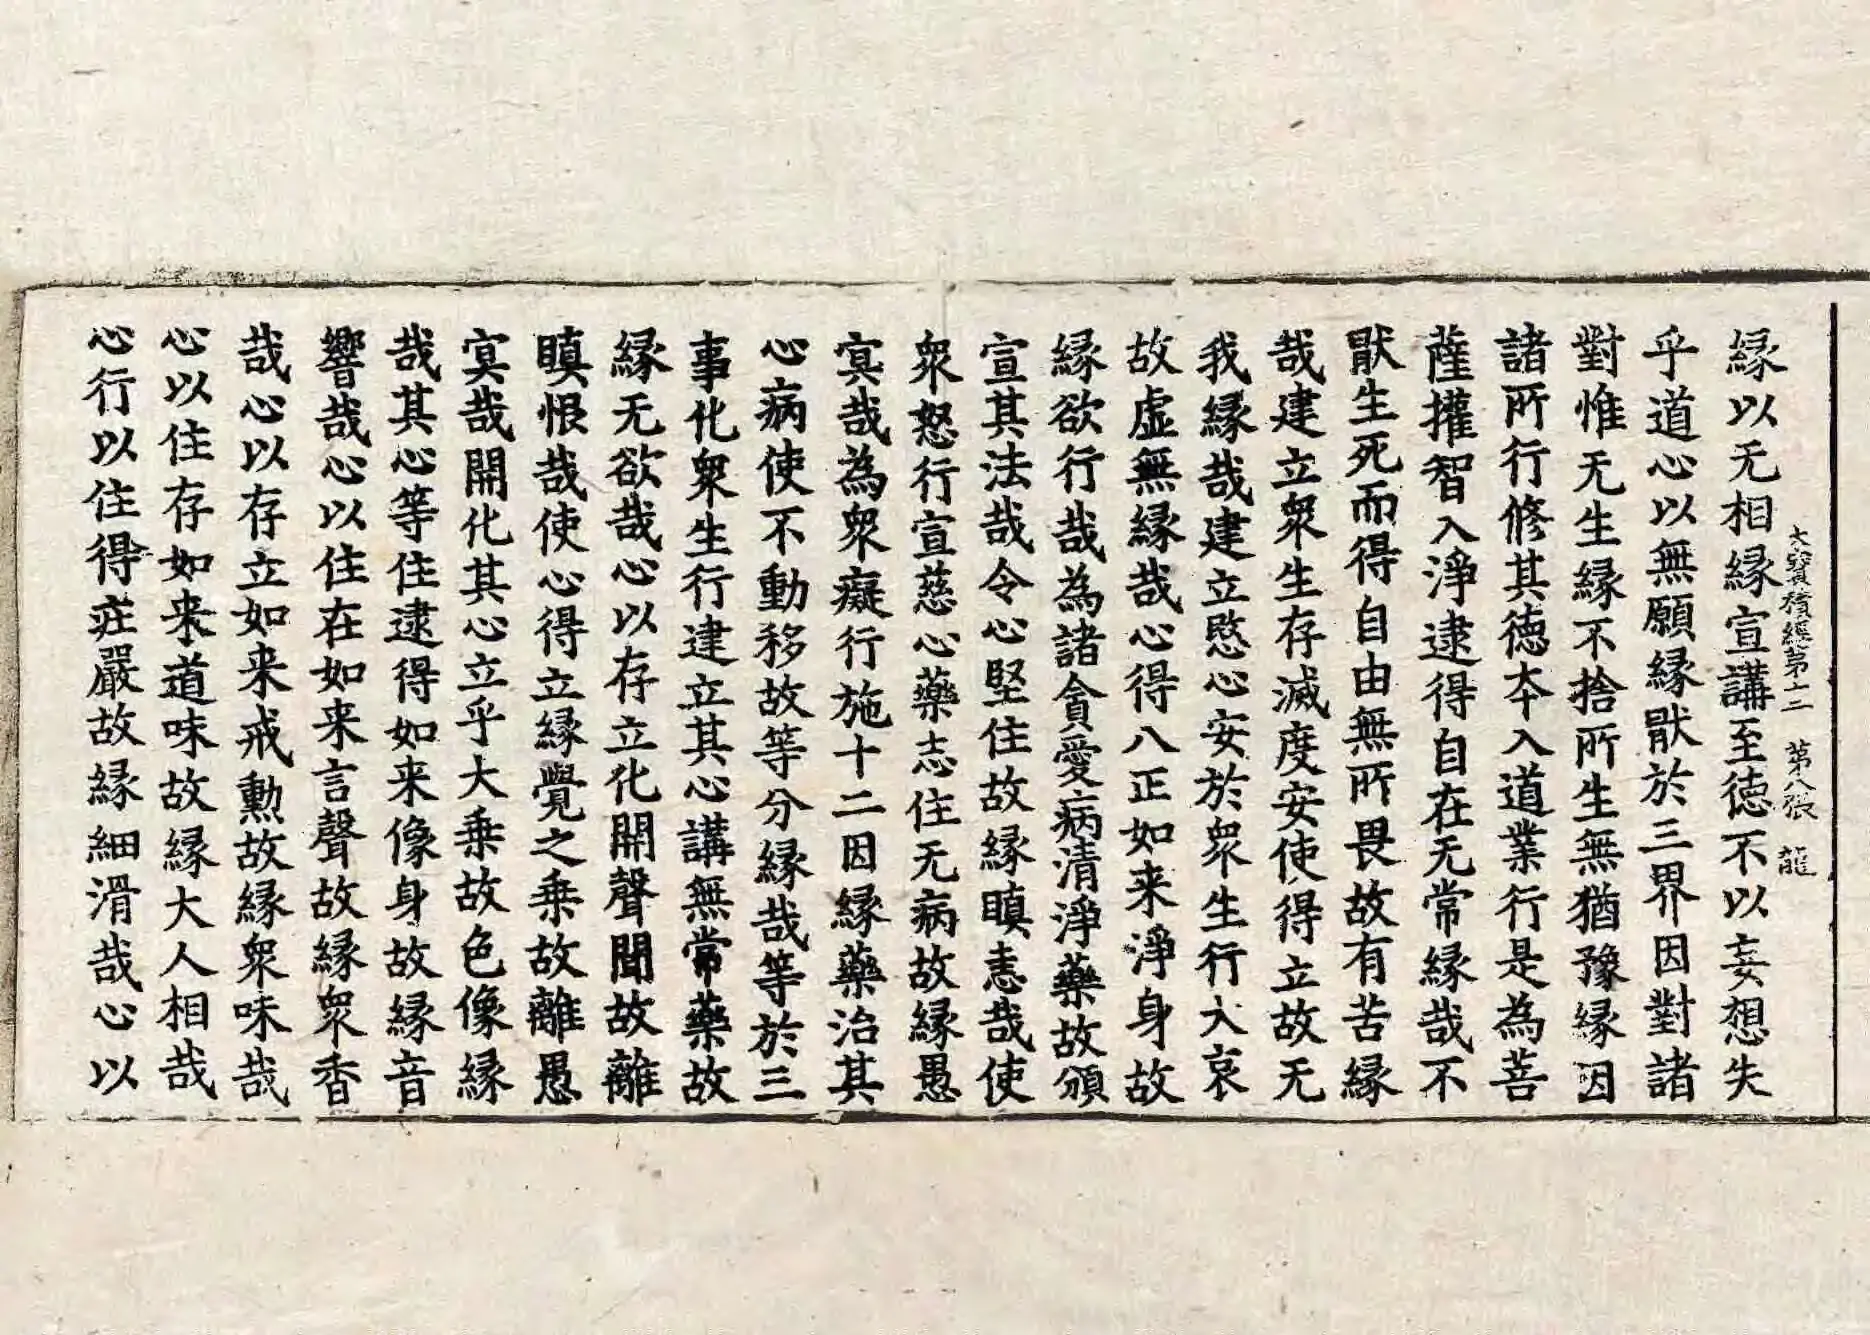 大寳積經第十二　第八張　龍
縁以无相縁宣講至徳不以妄想失
乎道心以無願縁猒於三界因對諸
對惟无生縁不捨所生無猶豫縁因
諸所行修其徳本入道業行是為菩
薩攉智入淨逮得自在无常縁哉不
猒生死而得自由無所畏故有苦縁
哉建立衆生存滅度安使得立故无
我縁哉建立愍心安於衆生行大哀
故虛無縁哉心得八正如来淨身故
縁欲行哉為諸貪愛病清淨藥故頒
宣其法哉令心堅住故縁瞋恚哉使
衆怒行宣慈心藥志住无病故縁愚
㝠哉為衆癡行施十二因縁藥治其
心病使不動移故等分縁哉等於三
事化衆生行建立其心講無常藥故
縁无欲哉心以存立化開聲聞故離
瞋恨哉使心得立縁覺之乗故離愚
㝠哉開化其心立乎大乗故色像縁
哉其心等住逮得如来像身故縁音
響哉心以住在如来言聲故縁衆香
哉心以存立如来戒勲故縁衆味哉
心以住存如来道味故縁大人相哉
心行以住得莊嚴故縁細滑哉心以